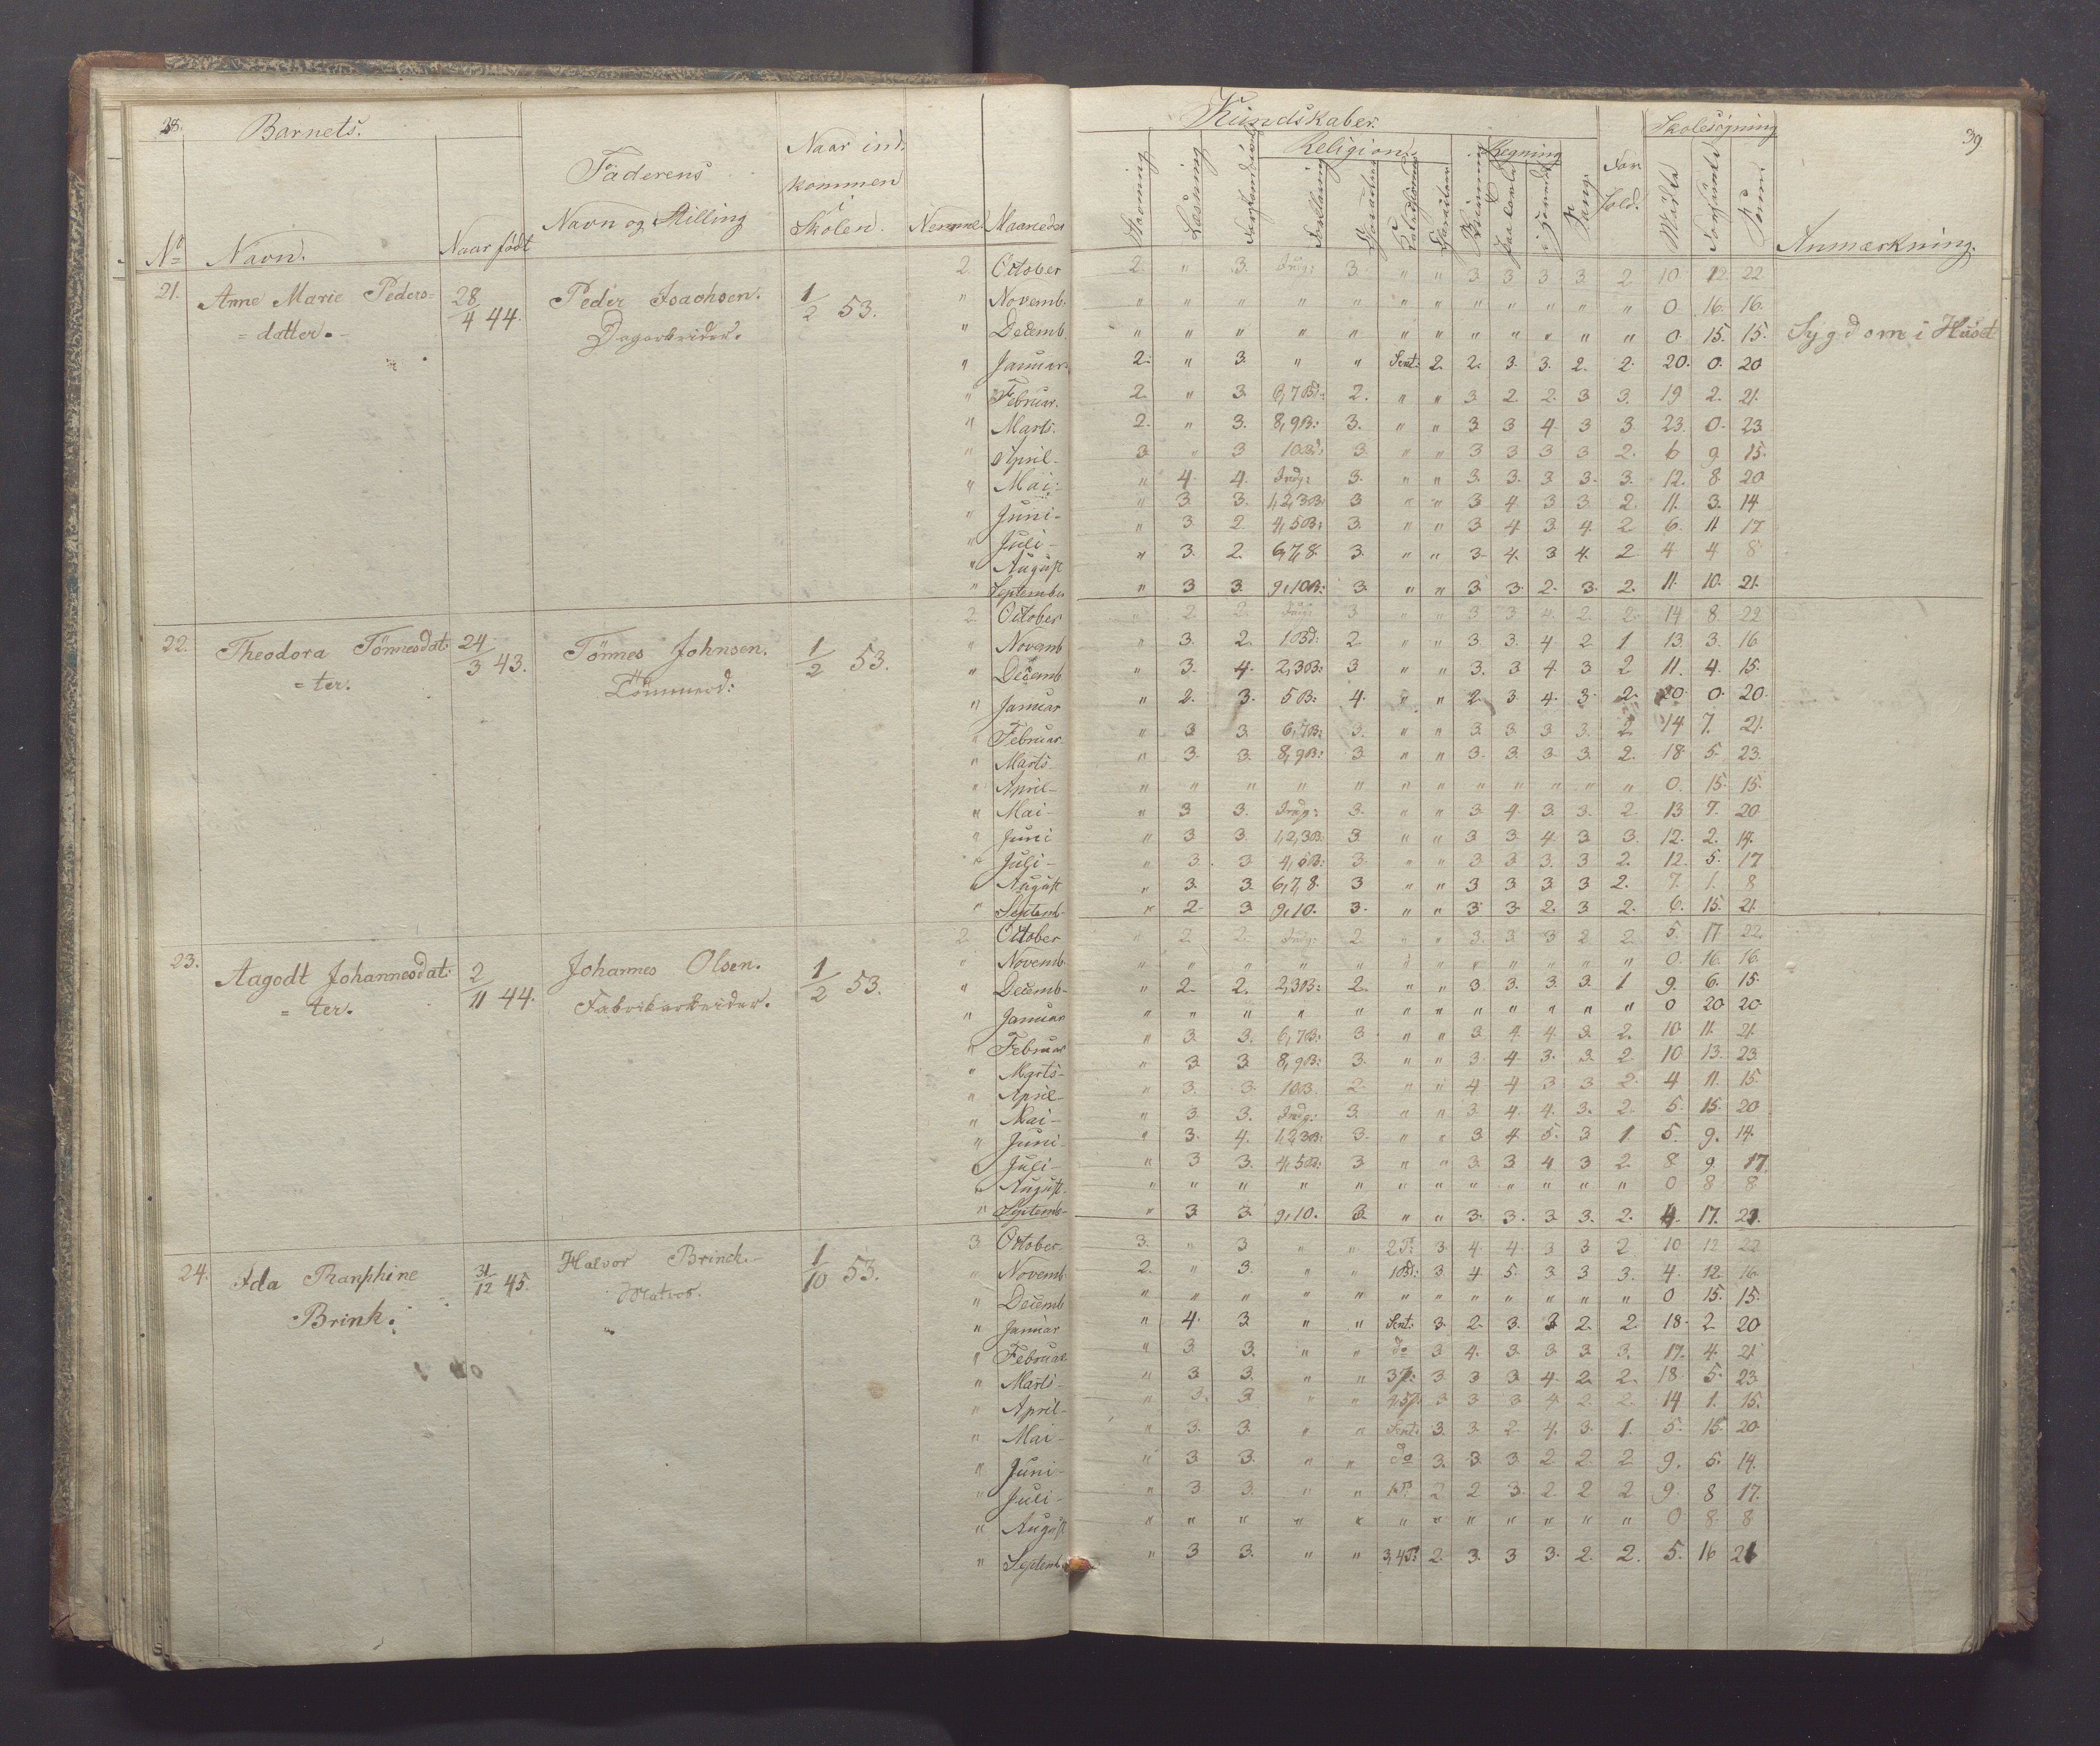 28. Barnets.
Faderens
Navn og Stilling
Naar ind-
kommen
i
Skolen.
Nemme
Maaneder
No Navn. Naar født
Kundskaber.
Religion.
Regning
Skolesøgning
39
Stavning
Læsning
Forhold.
Mødte
Forsømte
Sum
Sang.
Anmærkning.
21. Anne Marie Peders= 28/4 44. Peder Isachsen. 1/2 53.
= datter. Dagarbeider.
2. October 2. " 3. Indg: 3. " " 3 3 3 3. 2. 10. 12. 22
" Novemb. " " " " " " " " " " " " 0. 16. 16.
" Decemb. " " " " " " " " " " " " 0. 15. 15. Sygdom i Huset
" Januar. 2. " 3. " " Sent: 2. 2. 3. 3. 2. 2. 20. 0. 20
" Februar. 2. " 3. 6,7Bd: 2. " " 3 2 2 3 3. 19 2. 21.
" Marts. 2. " 3. 8,9B: 3. " " 3 3 4. 3 3 23. 0. 23
" April 3 " 3 10Bd: 3 " " 3 3 3 3 2. 6 9 15.
" Mai " 4. 4. Indg: 3. " " 3. 3. 3 3. 3. 12. 8 20
" Juni " 3 3. 1,2,3B 3 " " 3 4 3 3 2. 11. 3. 14
" Juli " 3 2. 4,5B: 3. " " 3 4 3 4. 2 6. 11 17
" August " 3. 2. 6,7,8. 3. " " 3. 4. 3 4. 2 4 4 8
" September " 3 3. 9,10B: 3. " " 3. 3. 2. 3. 2. 11. 10. 21.
22. Theodora Tönnesdat- 24/3 43. Tönnes Johnsen. 1/2 53.
= ter. Tömmerd:
2. October " 2 2. Indg: 3 " " 3 3 4 2 2. 14 8 22
" Novemb " 3. 2. 1Bd: 2. " " 3 3. 4 2 1 13. 3. 16
" Decemb " 3. 4. 2,3B: 3 " " 3. 3 4. 3 2 11. 4. 15.
" Januar " 2. 3. 5B: 4. " " 2 3 4. 3. 2. 20. 0. 20.
" Februar " 3 3. 6,7B: 3. " " 3 3 3 3. 2 14 7. 21.
" Marts " 3. 3. 8,9B: 3 " " 3. 3. 3 3. 2. 18 5. 23.
" April " " " " " " " " " " " " 0. 15. 15.
" Mai " 3 3. Indg: 3. " " 3 4. 3. 3. 2. 13 7. 20
" Juni " 3 3. 1,2,3B 3. " " 3 3 4. 3 3. 12. 2. 14.
" Juli " 3. 3 4,5B: 3. " " 3 3 3. 3 2. 12. 5. 17
" August " 3. 3. 6,7,8. 3 " " 3 3 3 3 2. 7. 1. 8
" Septemb " 2. 3 9,10. 3. " " 3. 3. 2. 3 2. 6. 15. 21.
23. Aagodt Johannesdat- 2/11 44. Johannes Olsen. 1/2 53.
= ter. Fabrikarbeider.
2. October " 2. 2. Indg: 2. " " 3. 3. 3 2 2. 5. 17 22
" Novemb. " " " " " " " " " " " " 0. 16. 16.
" Decemb " 2. 2. 2,3B: 2. " " 3 3. 3. 3. 1 9. 6. 15.
" Januar " " " " " " " " " " " " 0 20 20
" Februar " 3 3. 6,7B: 3. " " 3 4. 4. 3. 2. 10. 11. 21.
" Marts " 3 3 8,9B: 3. " " 3. 4 3. 3. 2. 10 13. 23
" April " 3. 3. 10B. 2. " " 4 4 3 3 2. 4 11. 15.
" Mai " 3. 3. Indg: 3. " " 3. 4. 4. 3. 2. 5. 15. 20
" Juni " 3. 4. 1,2,3B: 3. " " 3 4 5. 3 1. 5. 9. 14.
" Juli " 3 3. 4,5B: 3 " " 3. 3 4 3 2. 8 9. 17.
" August " " " " " " " " " " " " 0 8 8
" Septemb " 3. 3. 9,10. 3. " " 3. 3. 3 3. 2. 4. 17. 21.
24. Ida Branphine 31/12 45. Halvor Brinck. 1/10 53.
Brink. Matros.
3. October 3. " 3 " " 2P: 3 4. 4. 3 3 2 10 12 22
" Novemb 2. " 3. " " 1Bd: 3 4 5. 3 3 3. 4. 12. 16
" Decemb " " " " " " " " " " " " 0 15. 15.
" Januar " 4. 3 " " Sent: 3. 2. 3. 3 2. 2. 18. 2 20
" Februar " 3 3. " " do 3 4. 3. 3. 3. 3. 17. 4. 21
" Marts " 3 3. " " 3P: 3. 3 3 4. 2. 2. 18. 5. 23
" April " 3. 3 " " 4,5P. 3 3 3 4 2. 2. 14 1. 15.
" Mai " 3. 3. " " Sent: 3. 3. 2. 4. 3. 1. 5. 15. 20
" Juni " 3 3. " " do 3. 3. 3. 2. 2. 2 9. 5. 14.
" Juli " 3 3. " " 1P: 2 2 3. 2. 2 2 9. 8 17.
" August " " " " " " " " " " " " 0 8 8
" Septemb " 3 3. " " 3,4P: 2. 3. 3 3. 2. 2. 5. 16 21